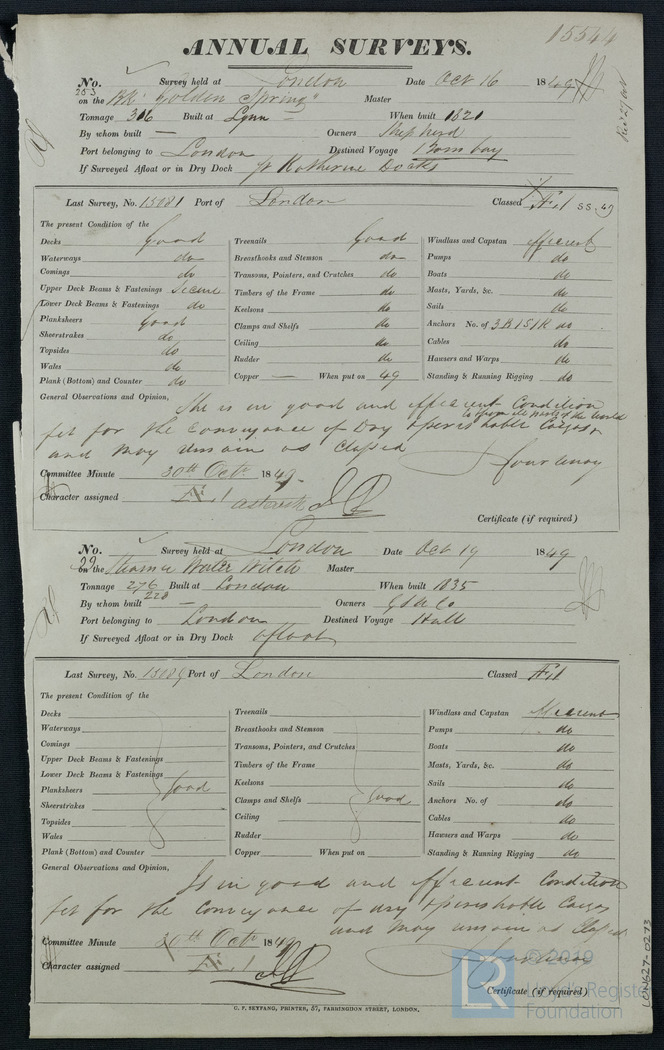 15544
ANNUAL SURVEYS.
No. 253 Survey held at London Date Oct 16 1849
on the Bk "Golden Spring" Master
Tonnage 316 Built at Lynn When built 1821
By whom built — Owners Shepherd
Port belonging to London Destined Voyage Bombay
If Surveyed Afloat or in Dry Dock St Katherine Docks
Last Survey, No. 15081 Port of London Classed Æ 1 SS. 49
The present Condition of the
Decks Good Treenails Good Windlass and Capstan Efficient
Waterways do Breasthooks and Stemson do Pumps do
Comings do Transoms, Pointers, and Crutches do Boats do
Upper Deck Beams & Fastenings Secure Timbers of the Frame do Masts, Yards, &c. do
Lower Deck Beams & Fastenings do Keelsons do Sails do
Planksheers Good Clamps and Shelfs do Anchors No. of 3B 1S 1K do
Sheerstrakes do Ceiling do Cables do
Topsides do Rudder do Hawsers and Warps do
Wales do Copper — When put on 49 Standing & Running Rigging do
Plank (Bottom) and Counter do
General Observations and Opinion, She is in good and efficient Condition
fit for the Conveyance of Dry & perishable Cargos to & from all parts of the World
and may remain as Classed
Committee Minute 30th Oct 1849
Character assigned Æ 1 asterisk
Certificate (if required)
No. 29 Survey held at London Date Oct 19 1849
on the Water Witch Master
Tonnage 276 228 Built at London When built 1835
By whom built — Owners
Port belonging to London Destined Voyage Hull
If Surveyed Afloat or in Dry Dock Afloat
Last Survey, No. 15089 Port of London Classed Æ 1
The present Condition of the
Decks Treenails Windlass and Capstan Efficient
Waterways Breasthooks and Stemson Pumps do
Comings Transoms, Pointers, and Crutches Boats do
Upper Deck Beams & Fastenings Timbers of the Frame Masts, Yards, &c. do
Lower Deck Beams & Fastenings Keelsons Sails do
Planksheers Good Clamps and Shelfs Good Anchors No. of do
Sheerstrakes Ceiling Cables do
Topsides Rudder Hawsers and Warps do
Wales Copper When put on Standing & Running Rigging do
Plank (Bottom) and Counter
General Observations and Opinion, Is in good and efficient Condition
fit for the Conveyance of dry & perishable Cargos
and may remain as Classed
Committee Minute 30th Oct 1849
Character assigned Æ 1
Certificate (if required)
C. F. SEYFANG, PRINTER, 57, FARRINGDON STREET, LONDON.
LON627-0273
LR
© 2019
Lloyd's Register
Foundation